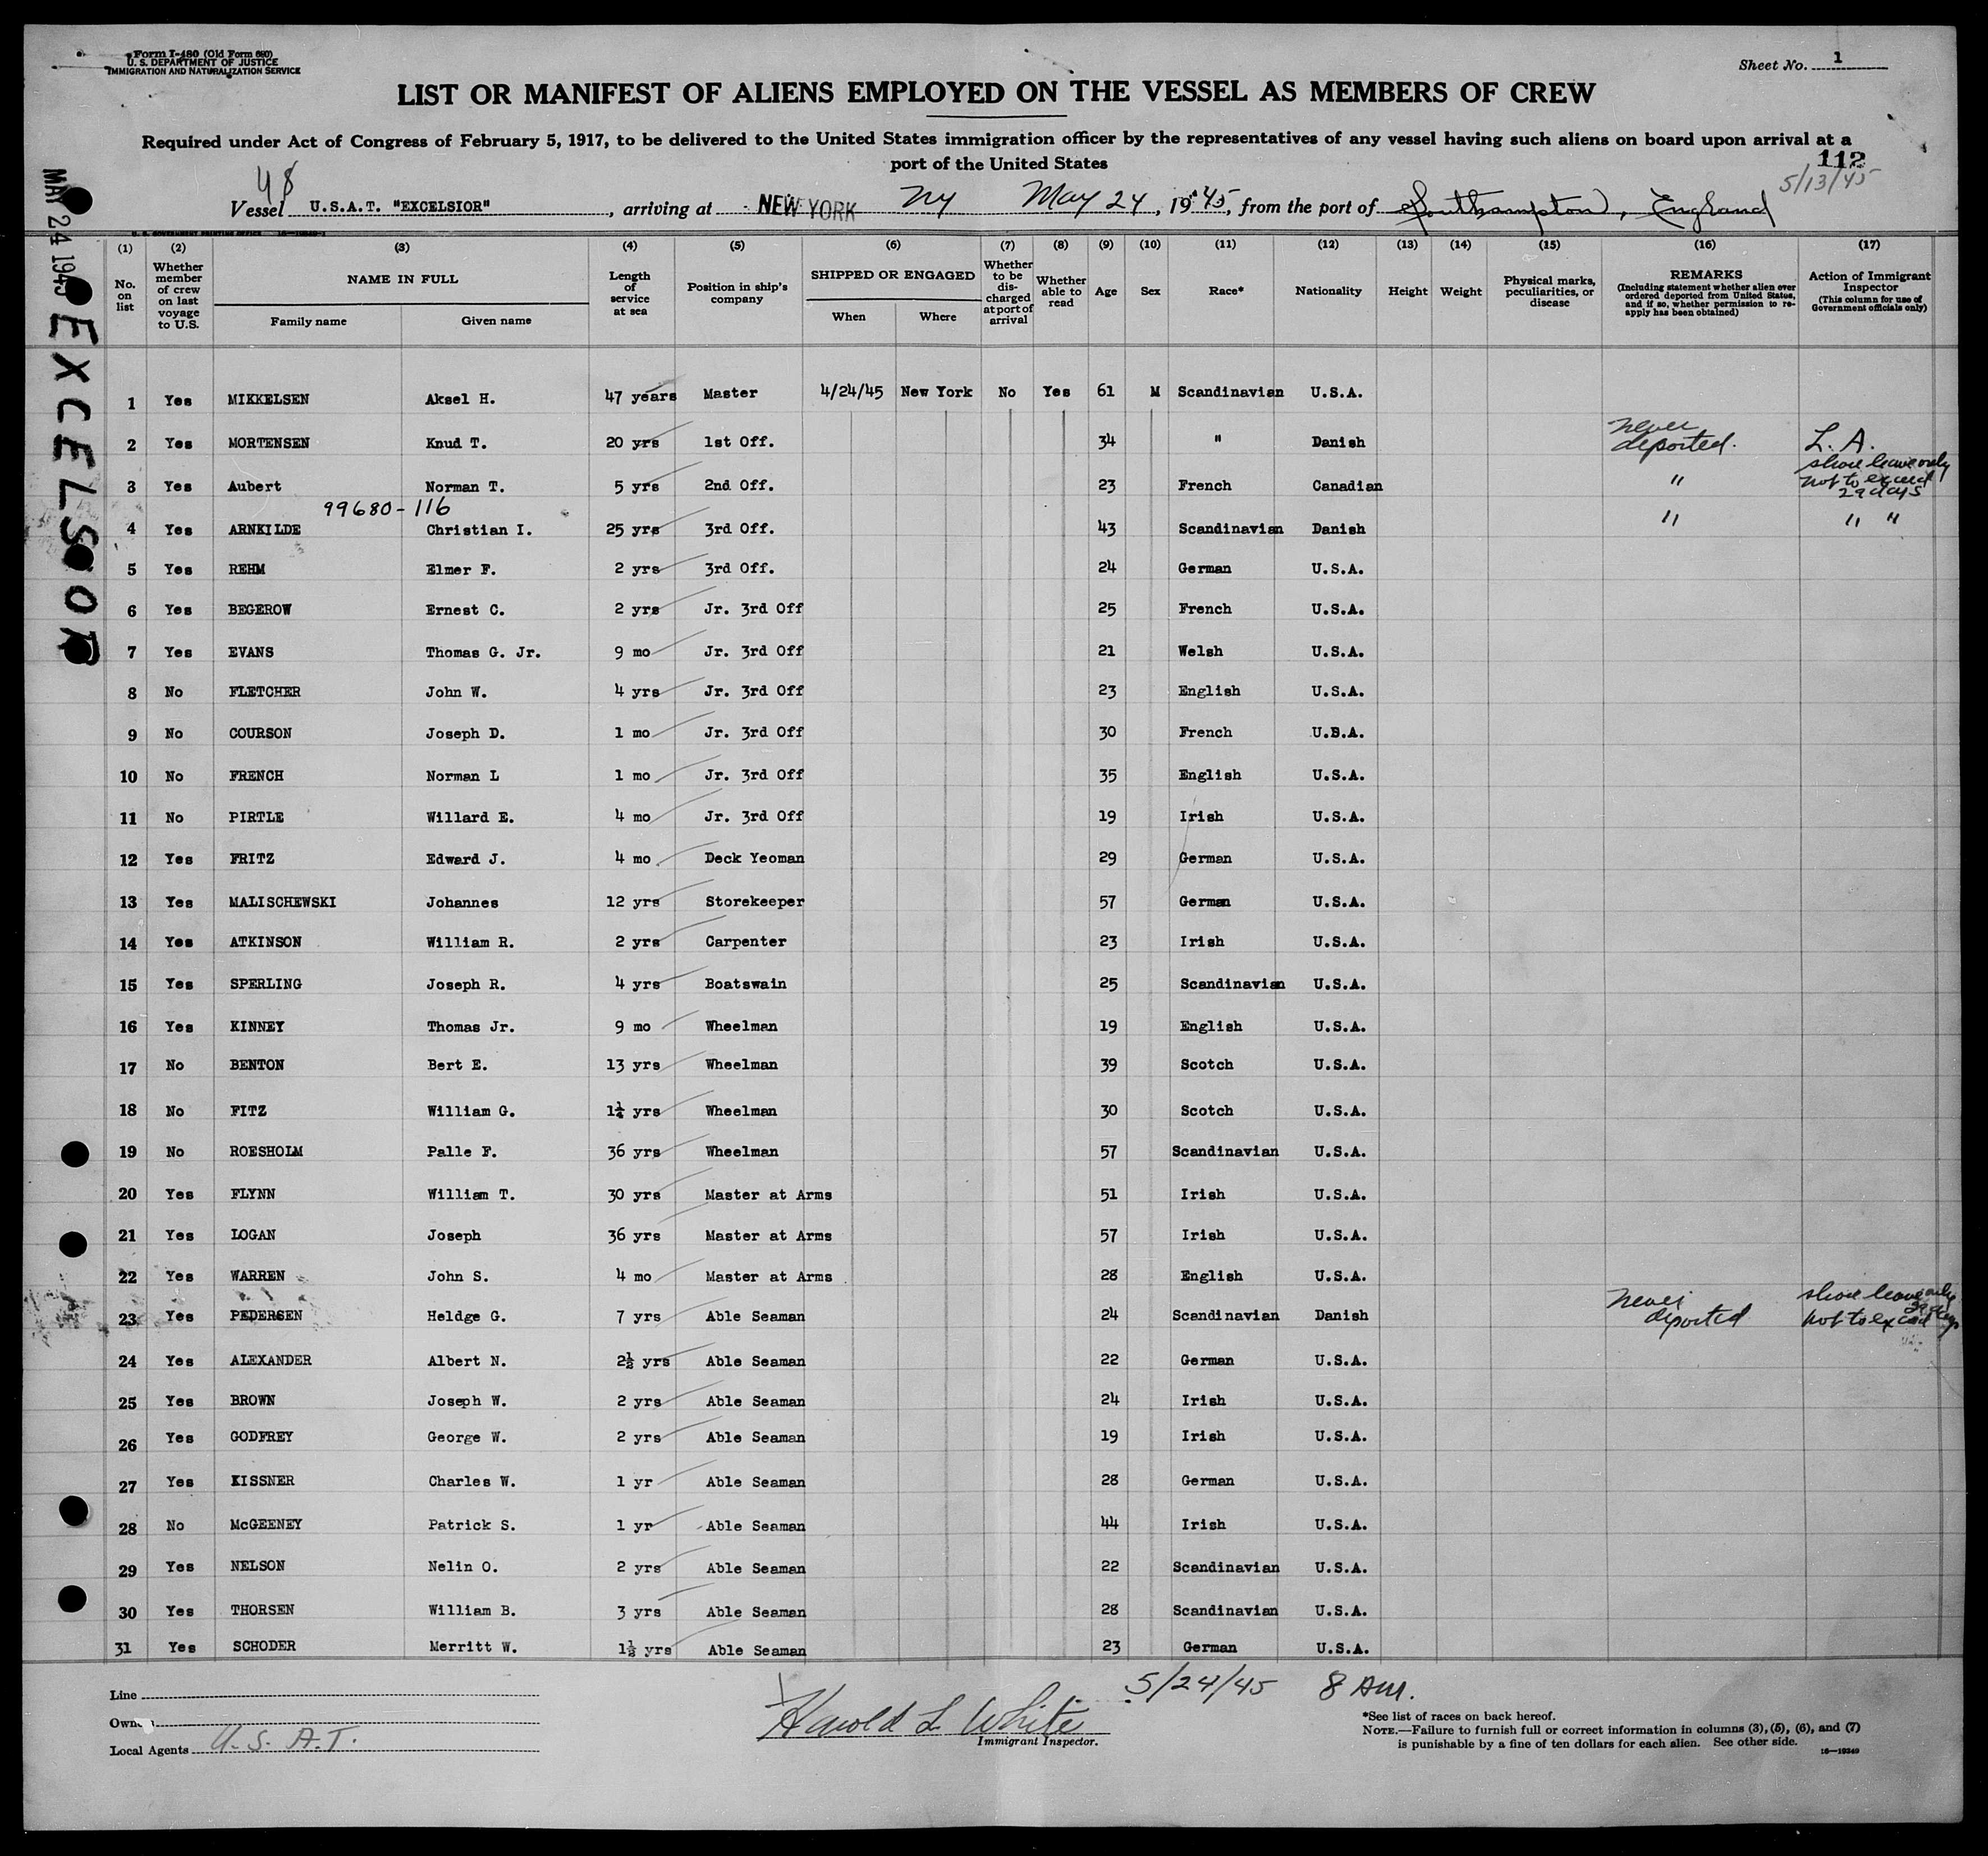 Form I-480 (Old Form 680)
U. S. DEPARTMENT OF JUSTICE
IMMIGRATION AND NATURALIZATION SERVICE
Sheet No. 1
LIST OR MANIFEST OF ALIENS EMPLOYED ON THE VESSEL AS MEMBERS OF CREW
Required under Act of Congress of February 5, 1917, to be delivered to the United States immigration officer by the representatives of any vessel having such aliens on board upon arrival at a
port of the United States
112
5/13/45
48
Vessel U.S.A.T. "EXCELSIOR", arriving at NEW YORK NY May 24, 1945, from the port of Southampton, England
MAY 24 1945 EXCELSIOR
(1) (2) (3) (4) (5) (6) (7) (8) (9) (10) (11) (12) (13) (14) (15) (16) (17)
No. on list
Whether member of crew on last voyage to U.S.
NAME IN FULL
Family name
Given name
Length of service at sea
Position in ship's company
SHIPPED OR ENGAGED
When
Where
Whether to be discharged at port of arrival
Whether able to read
Age
Sex
Race*
Nationality
Height
Weight
Physical marks, peculiarities, or disease
REMARKS
(Including statement whether alien ever ordered deported from United States, and if so, whether permission to re-apply has been obtained)
Action of Immigrant Inspector
(This column for use of Government officials only)
1 Yes MIKKELSEN Aksel H. 47 years Master 4/24/45 New York No Yes 61 M Scandinavian U.S.A.
2 Yes MORTENSEN Knud T. 20 yrs 1st Off. 34 " Danish never deported. L. A.
3 Yes Aubert Norman T. 5 yrs 2nd Off. 23 French Canadian " shore leave only not to exceed 29 days
99680-116
4 Yes ARNKILDE Christian I. 25 yrs 3rd Off. 43 Scandinavian Danish " " "
5 Yes REHM Elmer F. 2 yrs 3rd Off. 24 German U.S.A.
6 Yes BEGEROW Ernest C. 2 yrs Jr. 3rd Off 25 French U.S.A.
7 Yes EVANS Thomas G. Jr. 9 mo Jr. 3rd Off 21 Welsh U.S.A.
8 No FLETCHER John W. 4 yrs Jr. 3rd Off 23 English U.S.A.
9 No COURSON Joseph D. 1 mo Jr. 3rd Off 30 French U.S.A.
10 No FRENCH Norman L 1 mo Jr. 3rd Off 35 English U.S.A.
11 No PIRTLE Willard E. 4 mo Jr. 3rd Off 19 Irish U.S.A.
12 Yes FRITZ Edward J. 4 mo. Deck Yeoman 29 German U.S.A.
13 Yes MALISCHEWSKI Johannes 12 yrs Storekeeper 57 German U.S.A.
14 Yes ATKINSON William R. 2 yrs Carpenter 23 Irish U.S.A.
15 Yes SPERLING Joseph R. 4 yrs Boatswain 25 Scandinavian U.S.A.
16 Yes KINNEY Thomas Jr. 9 mo Wheelman 19 English U.S.A.
17 No BENTON Bert E. 13 yrs Wheelman 39 Scotch U.S.A.
18 No FITZ William G. 1¼ yrs Wheelman 30 Scotch U.S.A.
19 No ROESHOLM Palle F. 36 yrs Wheelman 57 Scandinavian U.S.A.
20 Yes FLYNN William T. 30 yrs Master at Arms 51 Irish U.S.A.
21 Yes LOGAN Joseph 36 yrs Master at Arms 57 Irish U.S.A.
22 Yes WARREN John S. 4 mo Master at Arms 28 English U.S.A.
23 Yes PEDERSEN Heldge G. 7 yrs Able Seaman 24 Scandinavian Danish never deported shore leave only not to exceed 29 days
24 Yes ALEXANDER Albert N. 2½ yrs Able Seaman 22 German U.S.A.
25 Yes BROWN Joseph W. 2 yrs Able Seaman 24 Irish U.S.A.
26 Yes GODFREY George W. 2 yrs Able Seaman 19 Irish U.S.A.
27 Yes KISSNER Charles W. 1 yr Able Seaman 28 German U.S.A.
28 No McGEENEY Patrick S. 1 yr Able Seaman 44 Irish U.S.A.
29 Yes NELSON Nelin O. 2 yrs Able Seaman 22 Scandinavian U.S.A.
30 Yes THORSEN William B. 3 yrs Able Seaman 28 Scandinavian U.S.A.
31 Yes SCHODER Merritt W. 1½ yrs Able Seaman 23 German U.S.A.
Line
Owner
Local Agents U. S. A.T.
Harold L White 5/24/45 8 AM.
Immigrant Inspector.
*See list of races on back hereof.
NOTE.—Failure to furnish full or correct information in columns (3), (5), (6), and (7)
is punishable by a fine of ten dollars for each alien. See other side.
16—19349